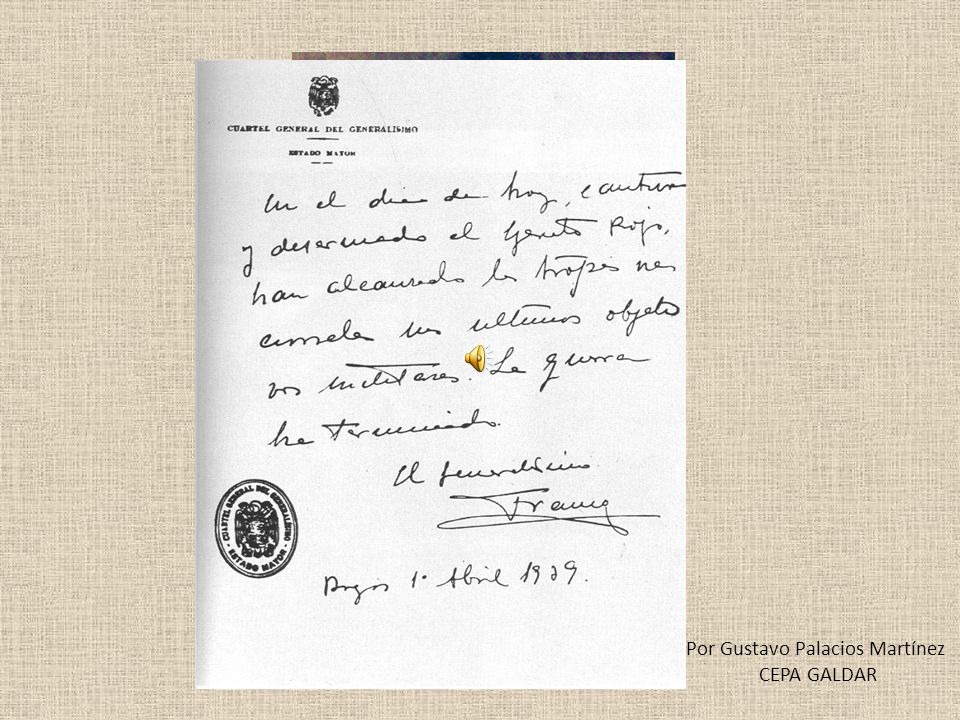 CUARTEL GENERAL DEL GENERALISIMO
ESTADO MAYOR
En el dia de hoy, cautivo
y desarmado el Ejercito Rojo,
han alcanzado las tropas na
cionales sus ultimos objeti
vos militares. La guerra
ha terminado.
El Generalisimo
Franco
Burgos 1º Abril 1939.
CUARTEL GENERAL DEL GENERALISIMO
- ESTADO MAYOR -
Por Gustavo Palacios Martínez
CEPA GALDAR